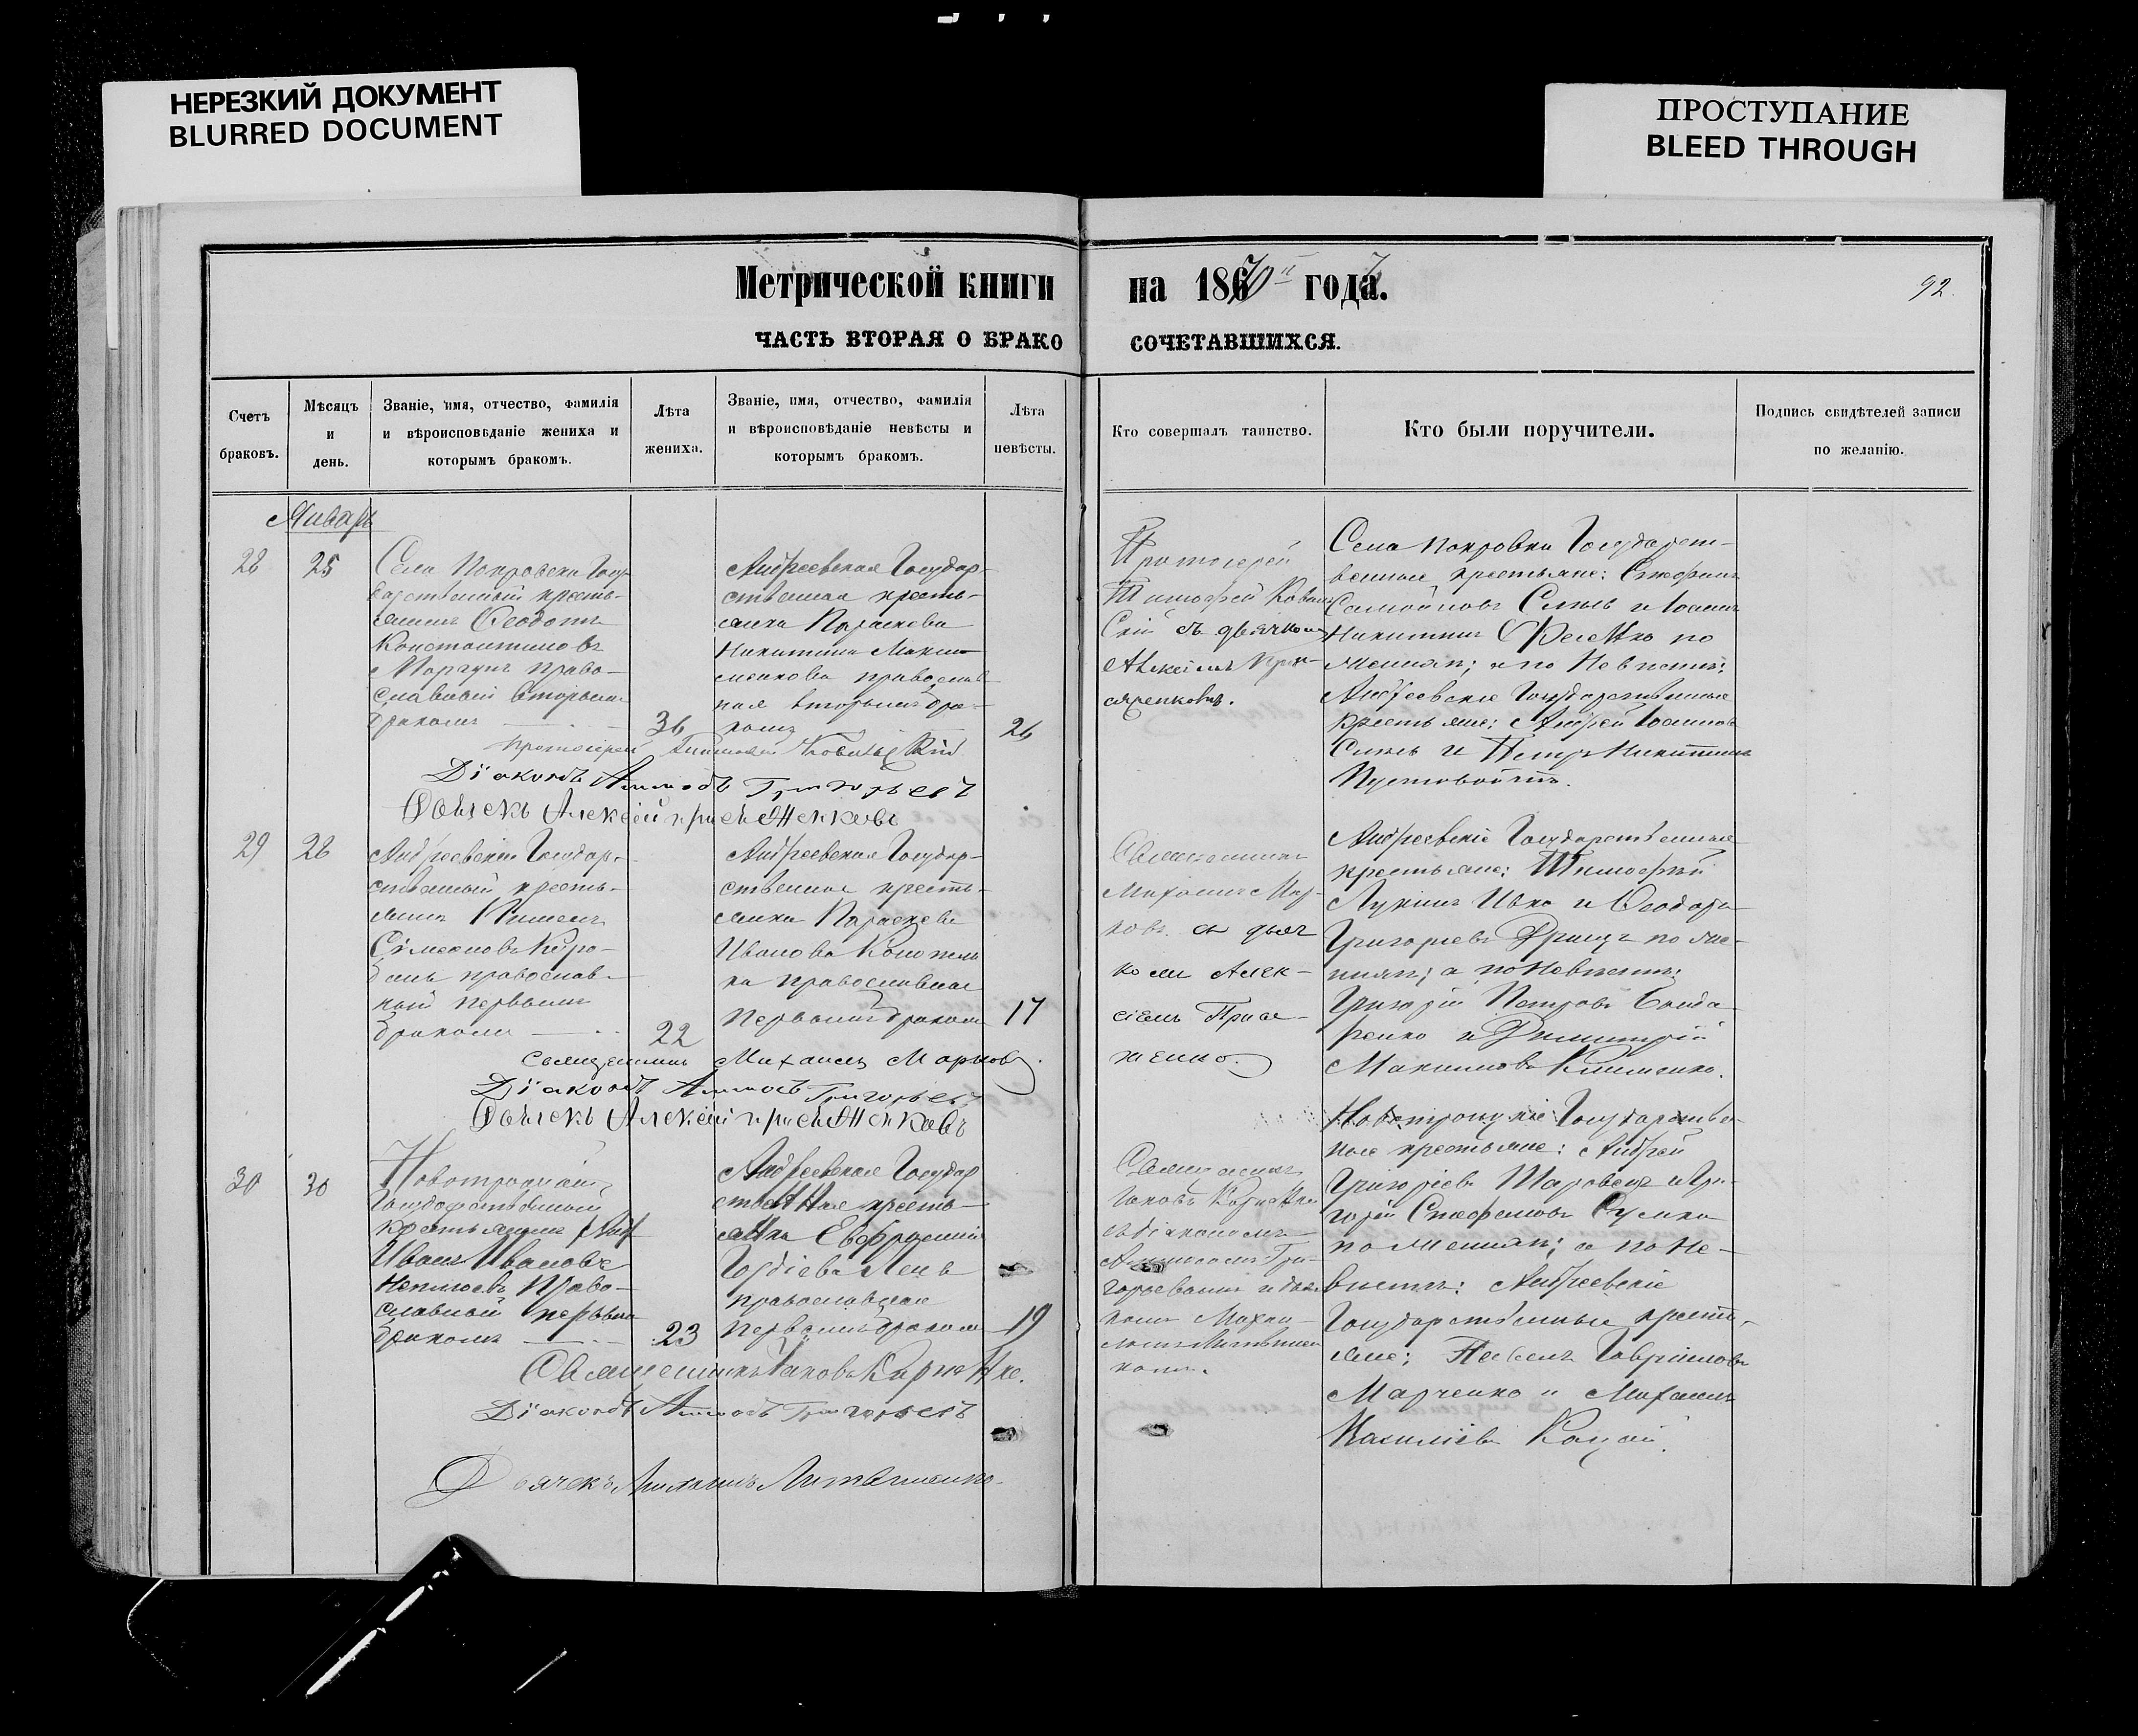 НЕРЕЗКИЙ ДОКУМЕНТ
BLURRED DOCUMENT
ПРОСТУПАНИЕ
BLEED THROUGH
Метрической книги на 1870 года.
92.
ЧАСТЬ ВТОРАЯ О БРАКО СОЧЕТАВШИХСЯ.
Счетъ
браковъ.
Мѣсяцъ
и
день.
Званіе, имя, отчество, фамилія
и вѣроисповѣданіе жениха и
которымъ бракомъ.
Лѣта
жениха.
Званіе, имя, отчество, фамилія
и вѣроисповѣданіе невѣсты и
которымъ бракомъ.
Лѣта
невѣсты.
Кто совершалъ таинство.
Кто были поручители.
Подпись свидѣтелей записи
по желанію.
Январь
28
25
Села Покровки Госу-
дарственный кресть-
янинъ Ѳеодотъ
Константиновъ
Моргунъ право-
славный вторымъ
бракомъ
36
Андреевская Государ-
ственная кресть-
янка Параскева
Никитина
православ-
ная вторымъ бра-
комъ
26
Протоіерей
Тимофей
съ дьячкомъ
Алексіемъ
Села Покровки Государст-
венные крестьяне: Стефанъ
Самойловъ и Іоаннъ
Никитинъ по
женихѣ; а по невѣстѣ:
Андреевскіе Государственные
крестьяне: Андрей Іоанновъ
и Петръ Никитинъ
Пустовойтъ.
Протоіерей Тимофей
Діаконъ Григорьевъ
Дьячекъ Алексій
29
28
Андреевскій Государ-
ственный кресть-
янинъ Пименъ
Симеоновъ
православ-
ный первымъ
бракомъ
22
Андреевская Государ-
ственная кресть-
янка Параскева
Иванова
православная
первымъ бракомъ
17
Священникъ
Михаилъ Мар-
ковъ съ дьяч
комъ Алек-
сіемъ
Андреевскіе Государственные
крестьяне: Тимофей
Лукинъ и Ѳеодоръ
Григорьевъ по же-
нихѣ; а по невѣстѣ:
Григорій Петровъ Бонда-
ренко и Димитрій
Максимовъ Клименко.
Священникъ Михаилъ Марковъ.
Діаконъ Григорьевъ
Дьячекъ Алексій
30
30
Новотроицкій
Государственный
крестьянинъ
Иванъ Ивановъ
право-
славный первымъ
бракомъ
23
Андреевская Государ
ственная кресть-
янка Евфросинія
Гордіева
православная
первымъ бракомъ
19
Священникъ
Іаковъ
съ діакономъ
Гри-
горьевымъ и дьяч
комъ Михаи-
ломъ
Новотроицкіе Государствен-
ные крестьяне: Андрей
Григорьевъ и Гри-
горій Стефановъ
по женихѣ; а по не-
вѣстѣ: Андреевскіе
Государственные кресть-
яне: Павелъ Гавріиловъ
Марченко и Михаилъ
Василіевъ
Священникъ Іаковъ
Діаконъ Григорьевъ
Дьячекъ Михаилъ